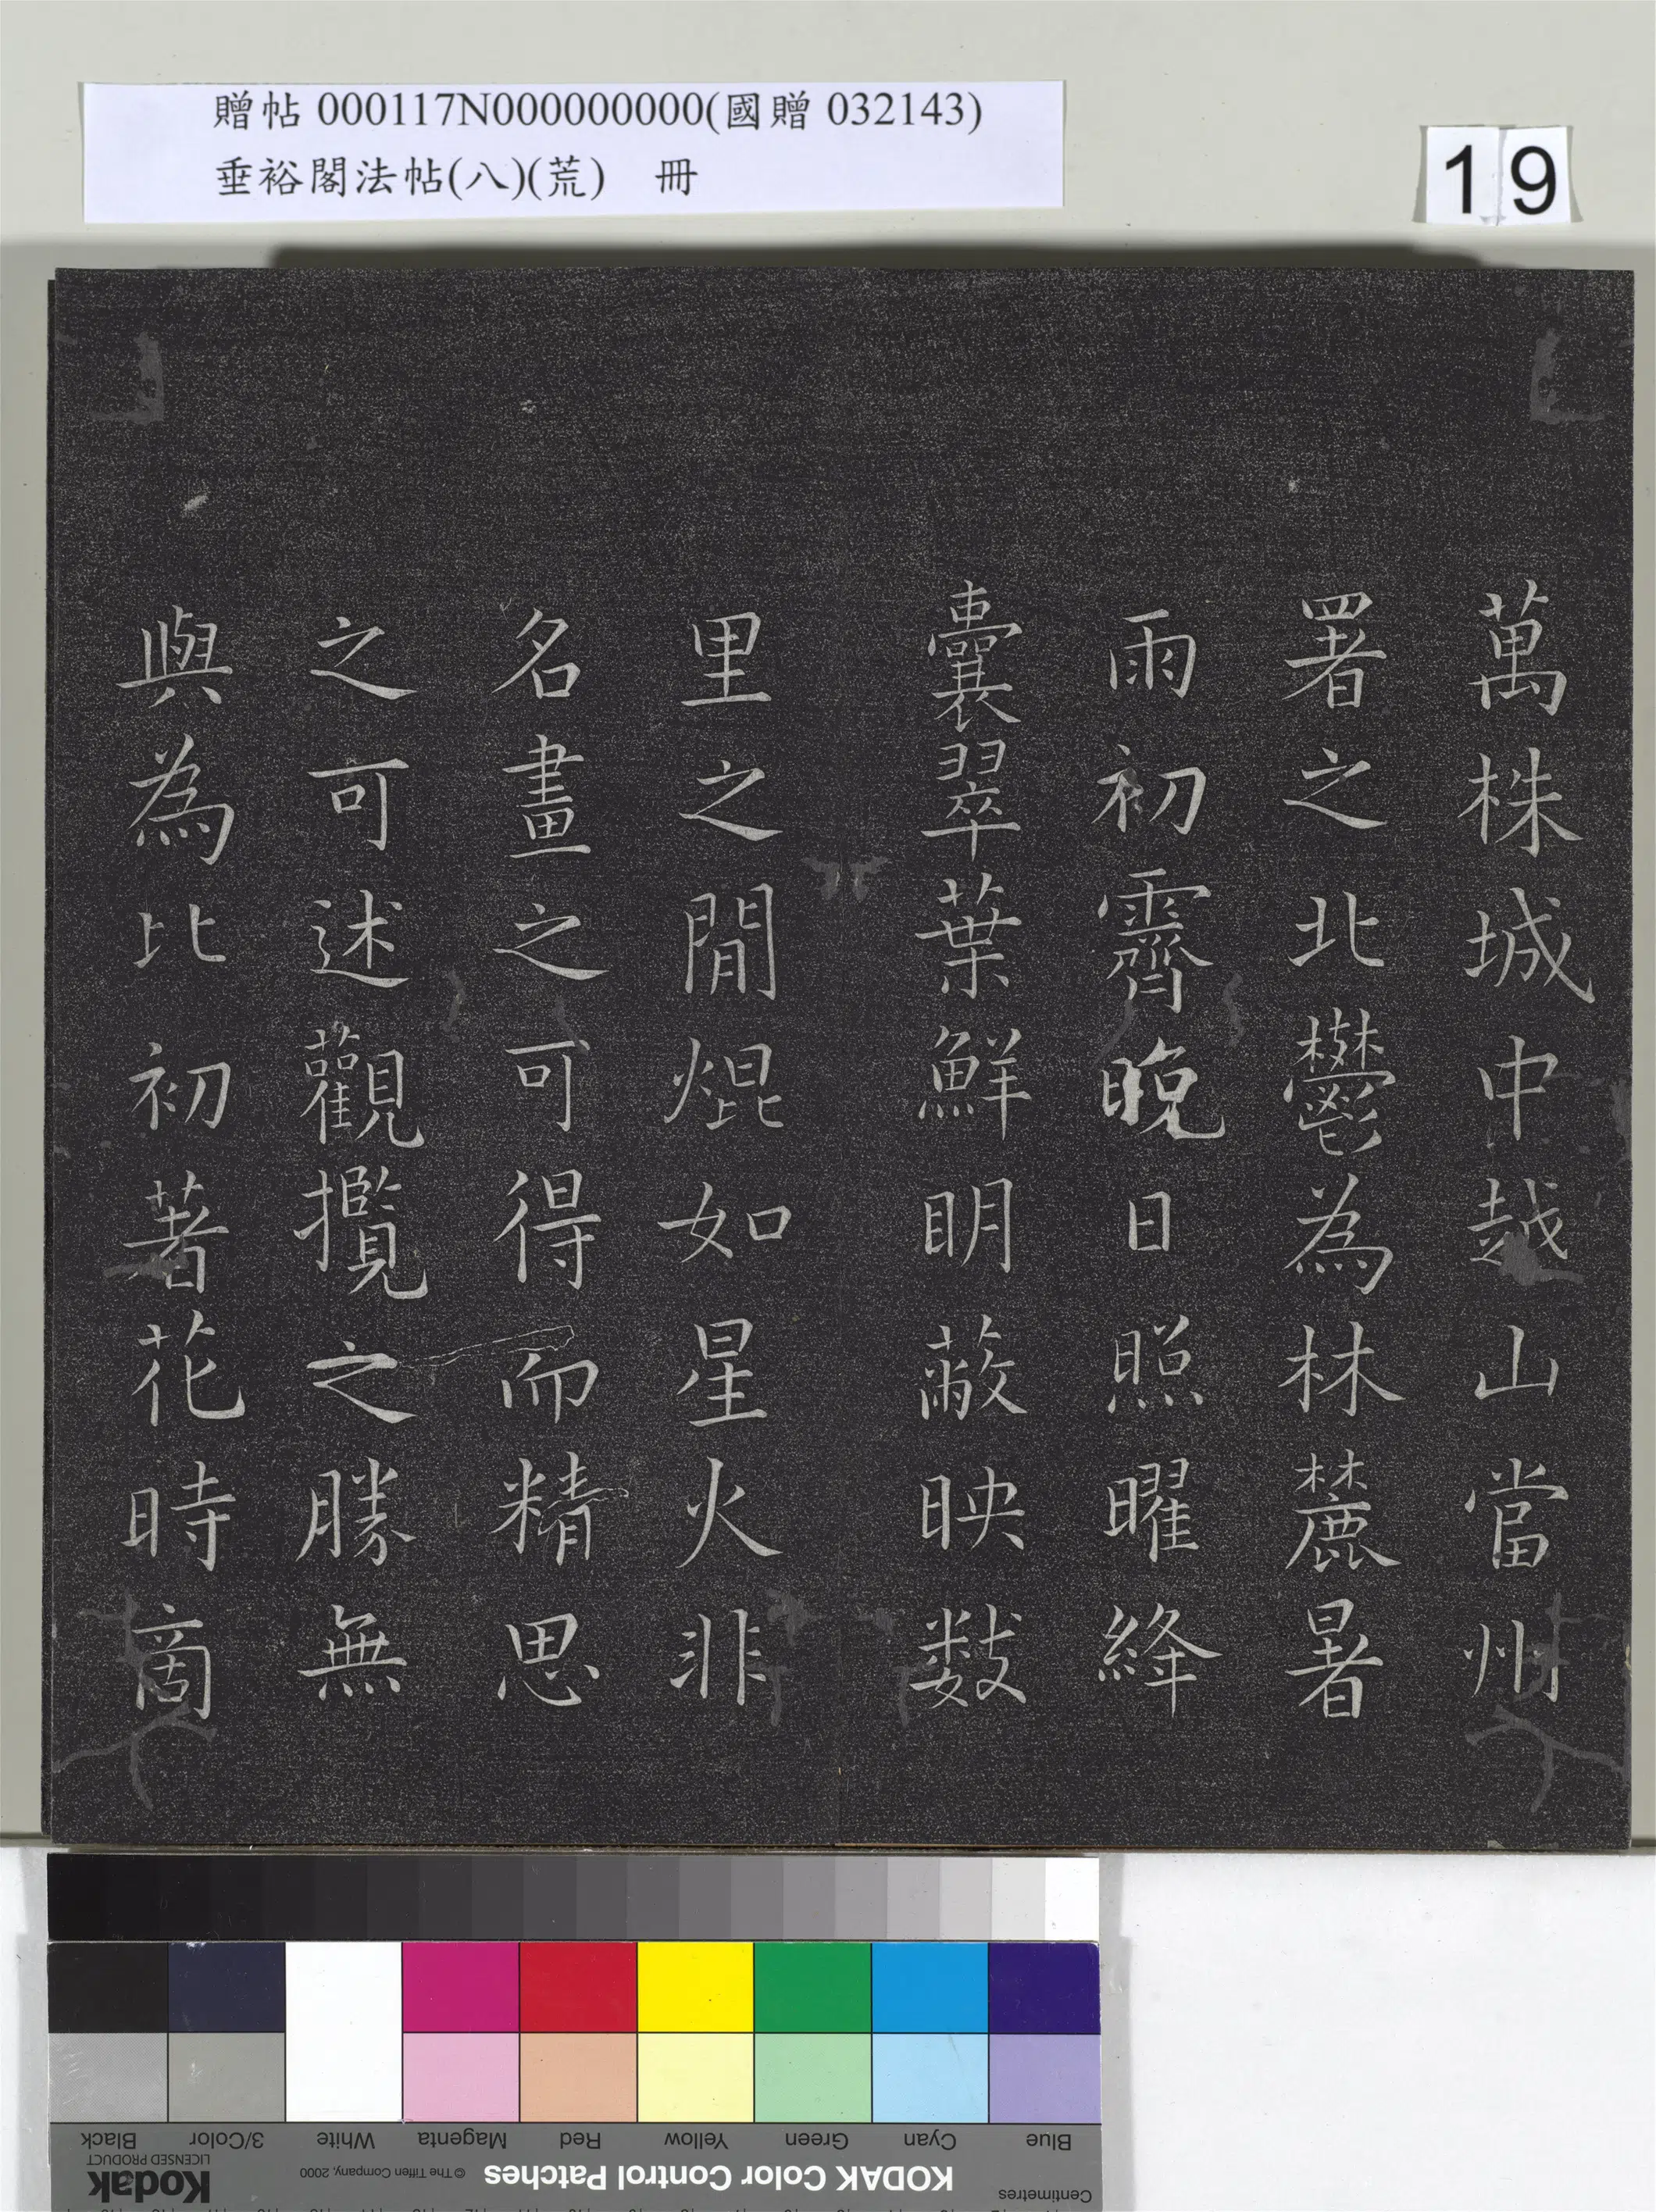 贈帖 000117N000000000(國贈 032143)
垂裕閣法帖(八)(荒) 冊
19
萬株城中越山當州
署之北鬱為林麓暑
雨初霽晚日照曜絳
囊翠葉鮮明蔽映数
里之間焜如星火非
名畫之可得而精思
之可述觀攬之勝無
與為比初著花時商
Black
3/Color
White
Magenta
Red
Yellow
Green
Cyan
Blue
Kodak
LICENSED PRODUCT
© The Tiffen Company, 2000
KODAK Color Control Patches
Centimetres